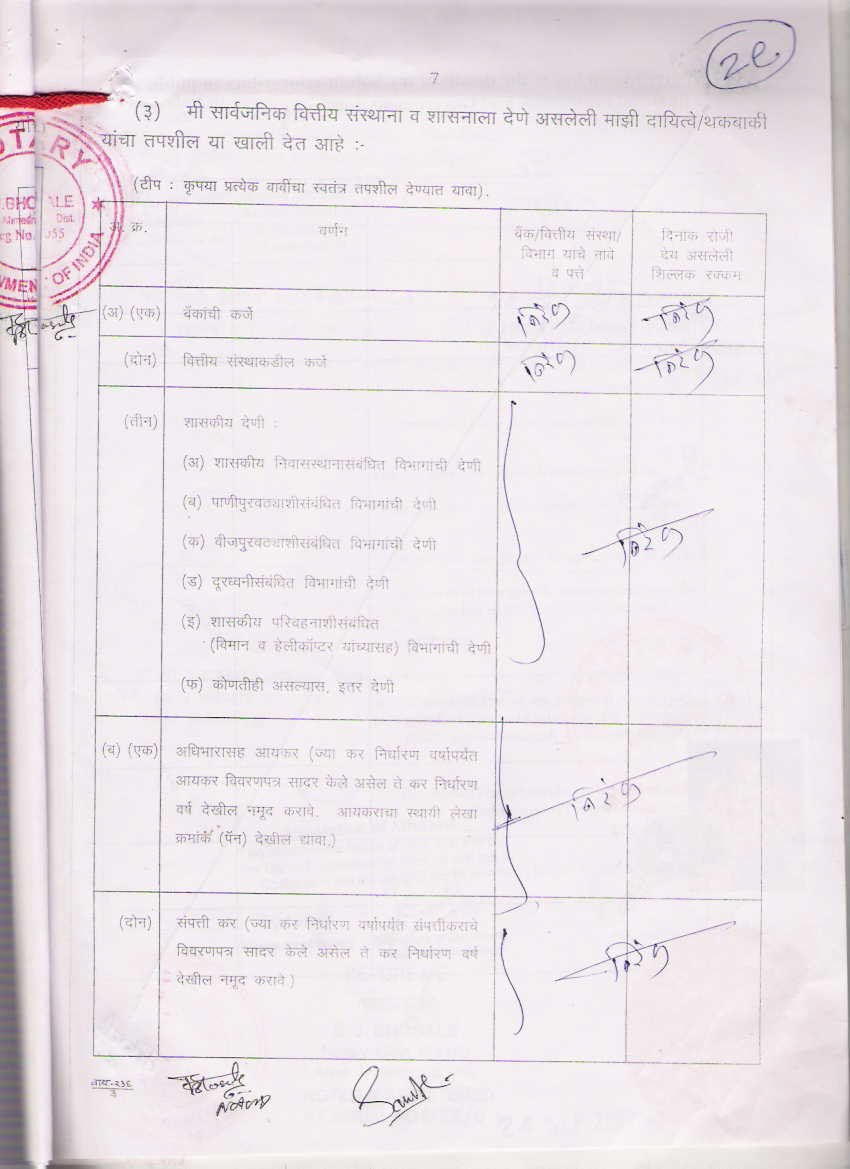 7
(३) मी सार्वजनिक वित्तीय संस्थाना व शासनाला देणे असलेली माझी दायित्वे/थकबाकी
यांचा तपशील या खाली देत आहे :-
(टीप : कृपया प्रत्येक बाबींचा स्वतंत्र तपशील देण्यात यावा).
अ. क्र. वर्णन बँक/वित्तीय संस्था/ दिनांक रोजी
विभाग यांचे नावे देय असलेली
व पत्ते शिल्लक रक्कम
(अ) (एक) बँकांची कर्जे निरंक निरंक
(दोन) वित्तीय संस्थाकडील कर्जे निरंक निरंक
(तीन) शासकीय देणी :
(अ) शासकीय निवासस्थानासंबंधित विभागांची देणी
(ब) पाणीपुरवठ्याशीसंबंधित विभागांची देणी
(क) वीजपुरवठ्याशीसंबंधित विभागांची देणी
निरंक
(ड) दूरध्वनीसंबंधित विभागांची देणी
(इ) शासकीय परिवहनाशीसंबंधित
(विमान व हेलीकॉप्टर यांच्यासह) विभागांची देणी
(फ) कोणतीही असल्यास, इतर देणी
(ब) (एक) अधिभारासह आयकर (ज्या कर निर्धारण वर्षापर्यंत
आयकर विवरणपत्र सादर केले असेल ते कर निर्धारण
वर्ष देखील नमूद करावे. आयकराचा स्थायी लेखा निरंक
क्रमांक (पॅन) देखील द्यावा.)
(दोन) संपत्ती कर (ज्या कर निर्धारण वर्षापर्यंत संपत्तीकराचे
विवरणपत्र सादर केले असेल ते कर निर्धारण वर्ष निरंक
देखील नमूद करावे)
NOTARY
Dist.
OF INDIA